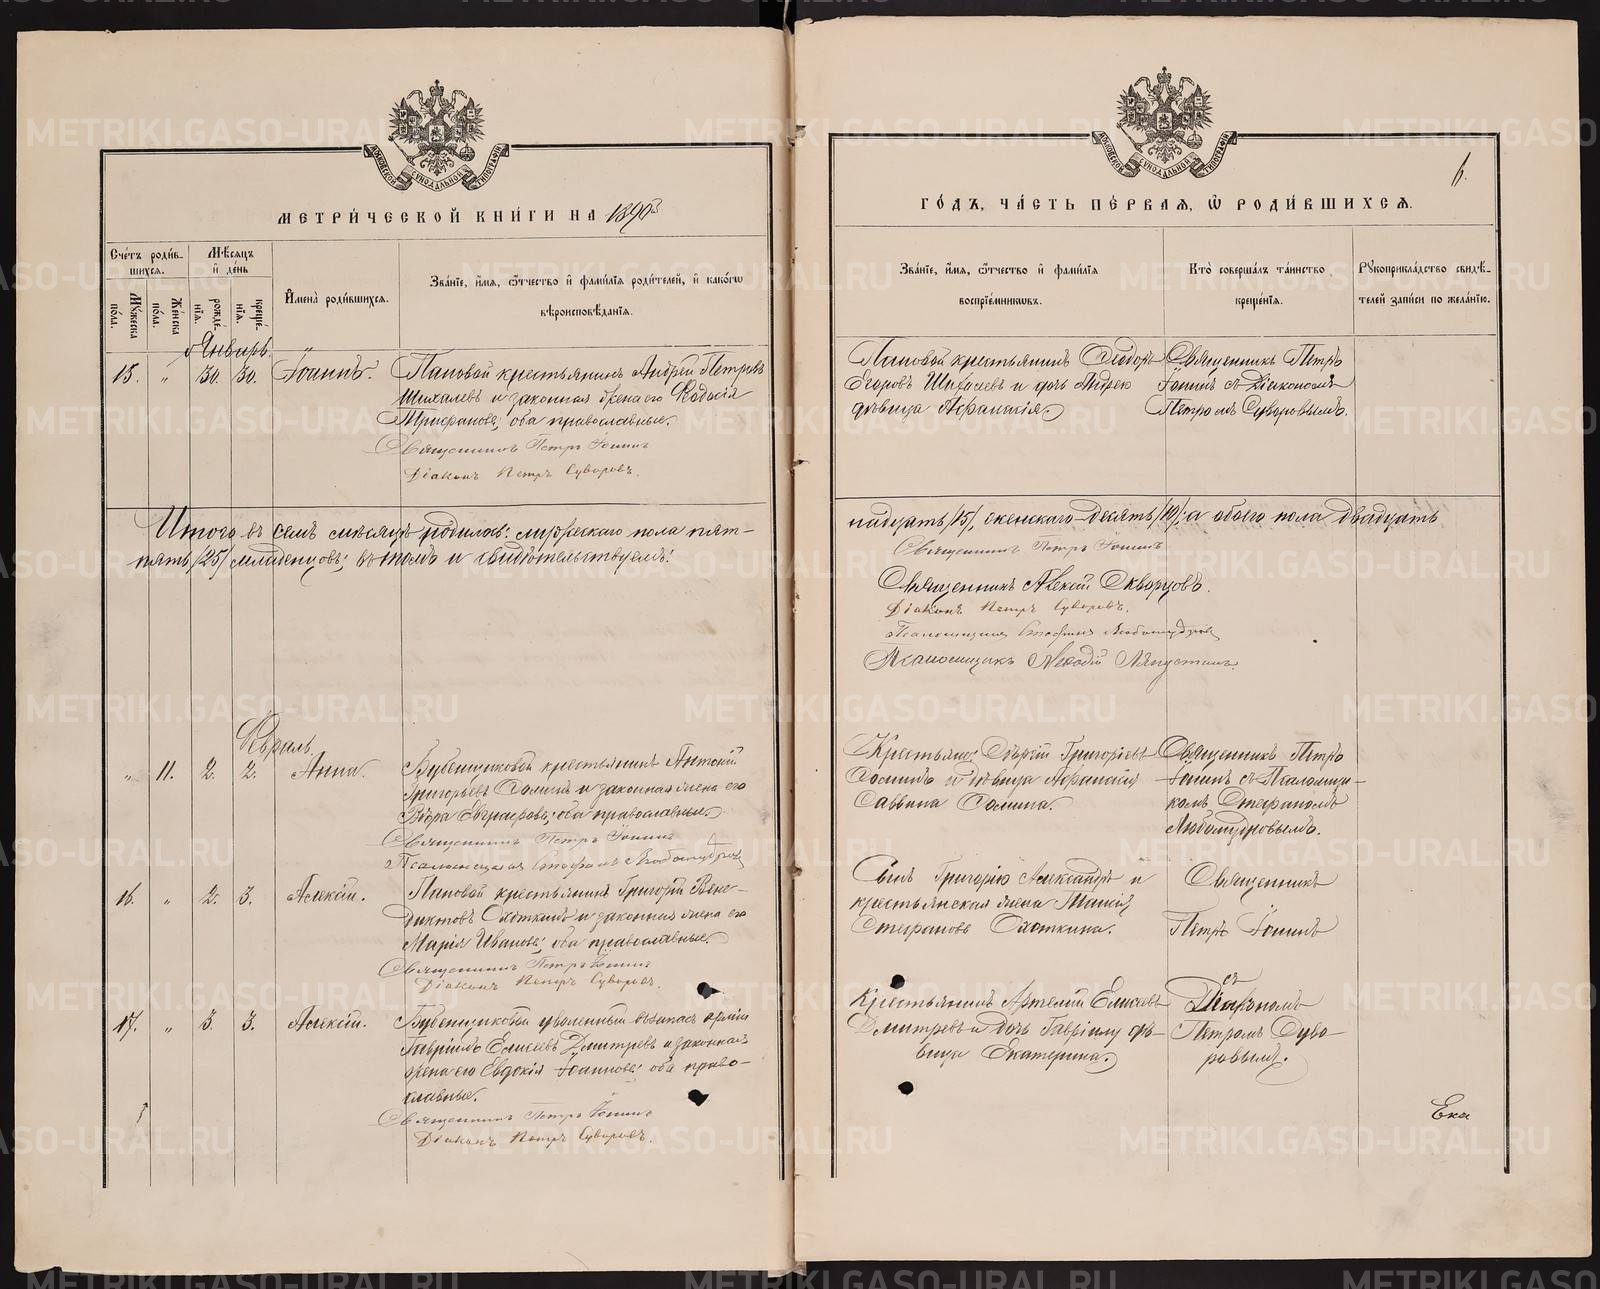 МЕТРИ́ЧЕСКОЙ КНИ́ГИ НА 1896
Сче́тъ роди́в-
шихся.
Мѣ́сяцъ
и҆ де́нь
Мꙋ́жеска
по́ла.
Же́нска
по́ла.
рожде́-
нїѧ.
креще́-
нїѧ.
И҆мена̀ роди́вшихся.
Зва́нїе, и҆́мѧ, ѻ҆́тчество и҆ фами́лїѧ роди́телей, и҆ како́гѡ
вѣроисповѣ́данїѧ.
Январь.
15. " 30. 30. Іоаннъ.
Пановой крестьянинъ Андрей Петровъ
Шихалевъ и законная жена его Ѳедосія
Трифанова; оба православные.
Священникъ Петръ Іонинъ
Діаконъ Петръ Суворовъ.
Итого въ семъ мѣсяцѣ родилось: мужескаго пола пят-
пять /25/ младенцовъ; въ томъ и свидѣтельствуемъ:
Февраль.
" 11. 2. 2. Анна.
Бубенщиковой крестьянинъ Антоній
Григорьевъ Соминъ и законная жена его
Вѣра Евграфова; оба православные.
Священникъ Петръ Іонинъ
Псаломщикъ Стефанъ Любомудровъ
16. " 2. 3. Алексій.
Пановой крестьянинъ Григорій Вене-
диктовъ Охоткинъ и законная жена его
Марія Иванова; оба православные.
Священникъ Петръ Іонинъ
Діаконъ Петръ Суворовъ.
17. " 3. 3. Алексій.
Бубенщиковой уволенный въ запасъ арміи
Гавріилъ Елисеевъ Дмитревъ и законная
жена его Евдокія Іоаннова; оба право-
славные.
Священникъ Петръ Іонинъ
Діаконъ Петръ Суворовъ.
ГО́ДЪ, ЧА́СТЬ ПЕ́РВАЯ, Ѽ РОДИ́ВШИХСЯ.
6.
Зва́нїе, и҆́мѧ, ѻ҆́тчество и҆ фами́лїѧ
воспрїе́мникѡвъ.
Кто̀ соверша́лъ та́инство
креще́нїѧ.
Рꙋкоприкла́дство свидѣ́-
телей за́писи по жела́нїю.
Пановой крестьянинъ Ѳеодоръ
Егоровъ Шихалевъ и дочь Андрею
дѣвица Афанасія.
Священникъ Петръ
Іонинъ съ Діакономъ
Петромъ Суворовымъ.
надцать /15/, женскаго-десять /10/; а обоего пола двадцать
Священникъ Петръ Іонинъ
Священникъ Алексій Скворцовъ.
Діаконъ Петръ Суворовъ.
Псаломщикъ Стефанъ Любомудровъ
Псаломщикъ
Крестьян: Сергій Григорьевъ
Соминъ и дѣвица Афанасія
Саввина Сомина.
Священникъ Петръ
Іонинъ съ Псаломщи-
комъ Стефаномъ
Любомудровымъ.
Сынъ Григорію Александръ и
крестьянская жена
Стефанова Охоткина.
Священникъ
Петръ Іонинъ
Крестьянинъ Артемій Елисеевъ
Дмитревъ и дочь Гавріилу дѣ-
вица Екатерина.
съ
Діакономъ
Петромъ Суво-
ровымъ.
Ека
METRIKI.GASO-URAL.RU